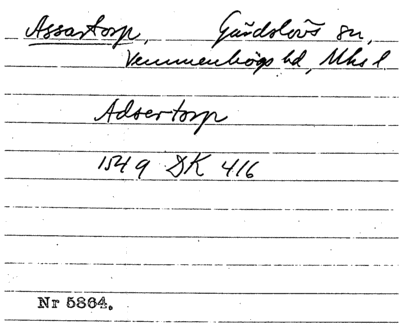 Assartorp, Gärdslövs sn,
Vemmenhögs hd, Mhs l
Adsertorp
1549 DK 416
Nr 5864.